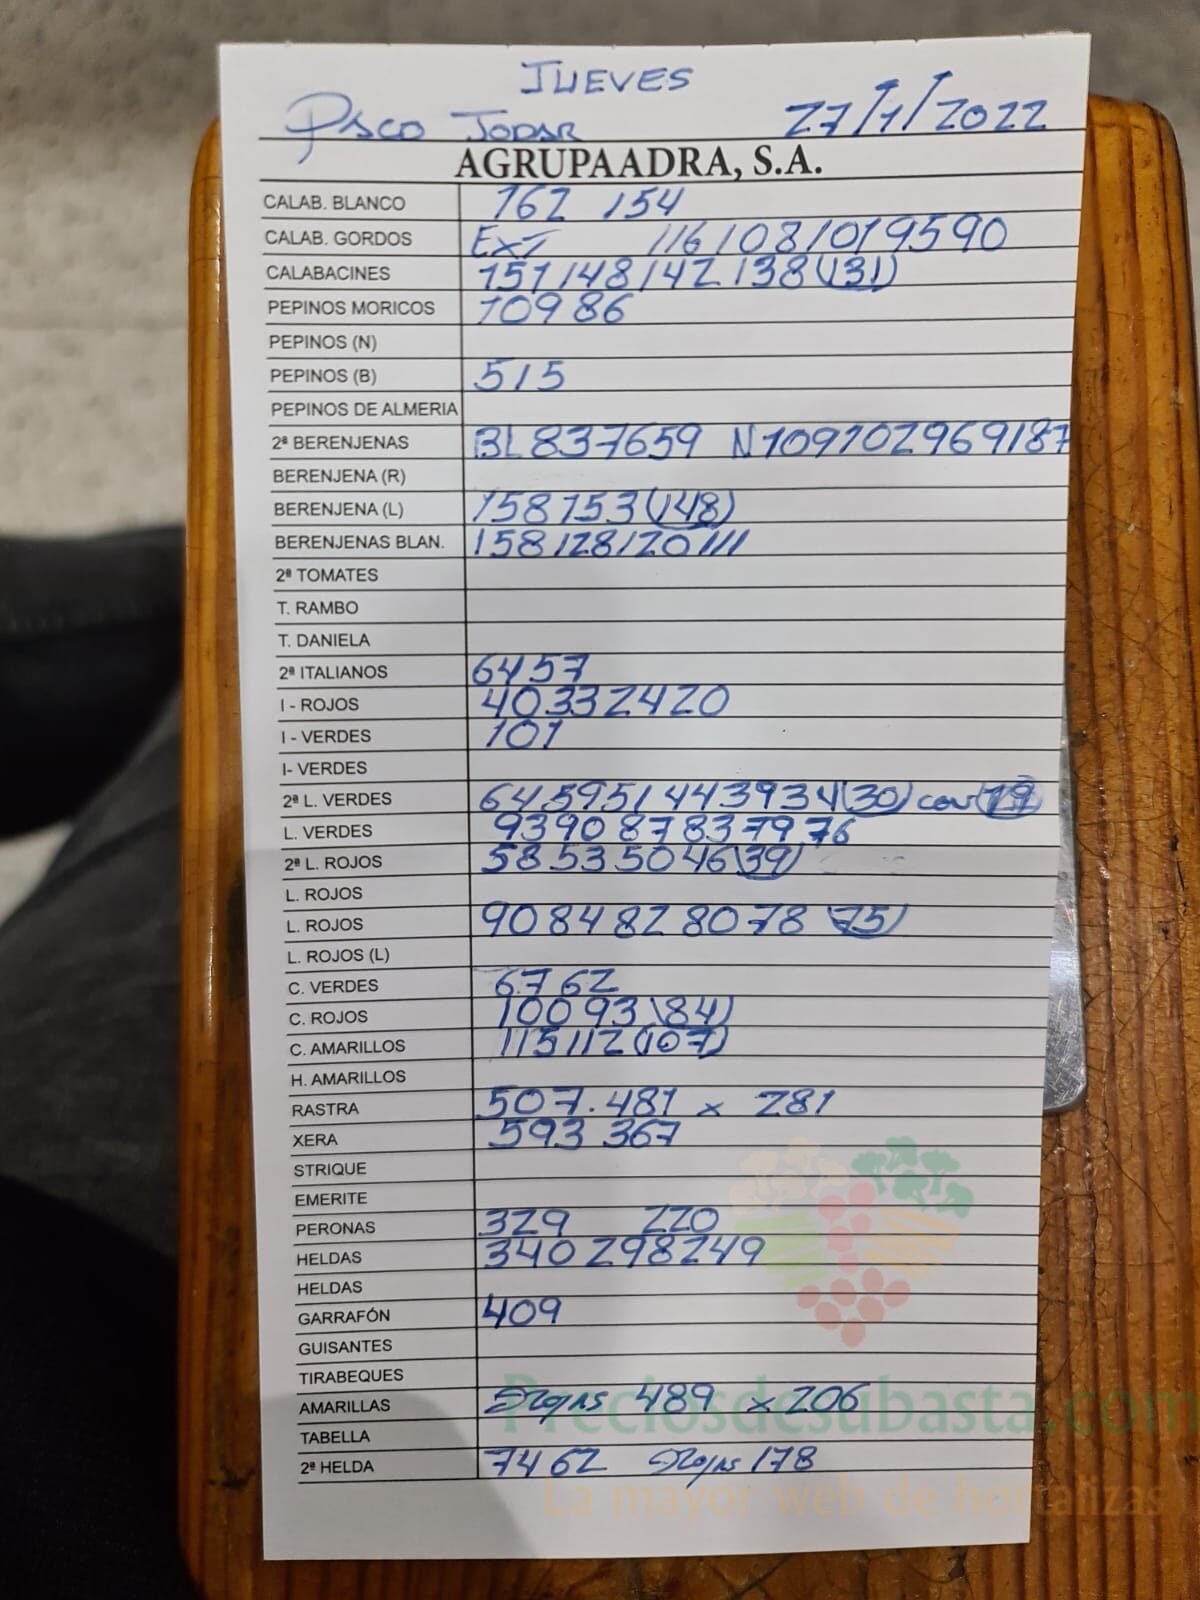 JUEVES
Paco Jodar 27/1/2022
AGRUPAADRA, S.A.
CALAB. BLANCO 162 154
CALAB. GORDOS EXT 116 108 101 95 90
CALABACINES 151 148 142 138 (131)
PEPINOS MORICOS 109 86
PEPINOS (N)
PEPINOS (B) 51 5
PEPINOS DE ALMERIA
2ª BERENJENAS BL 83 76 59 N 109 102 96 91 87
BERENJENA (R)
BERENJENA (L) 158 153 (148)
BERENJENAS BLAN. 158 128 120 111
2ª TOMATES
T. RAMBO
T. DANIELA
2ª ITALIANOS 64 57
I - ROJOS 40 33 24 20
I - VERDES 101
I- VERDES
2ª L. VERDES 64 59 51 44 39 34 (30) cov (19)
L. VERDES 93 90 87 83 79 76
2ª L. ROJOS 58 53 50 46 (39)
L. ROJOS
L. ROJOS 90 84 82 80 78 (75)
L. ROJOS (L)
C. VERDES 67 62
C. ROJOS 100 93 (84)
C. AMARILLOS 115 112 (107)
H. AMARILLOS
RASTRA 507.481 x 281
XERA 593 367
STRIQUE
EMERITE
PERONAS 329 220
HELDAS 340 298 249
HELDAS
GARRAFÓN 409
GUISANTES
TIRABEQUES
AMARILLAS Rojas 489 x 206
TABELLA
2ª HELDA 74 62 Rojas 178
Preciosdesubasta.com
La mayor web de hortalizas